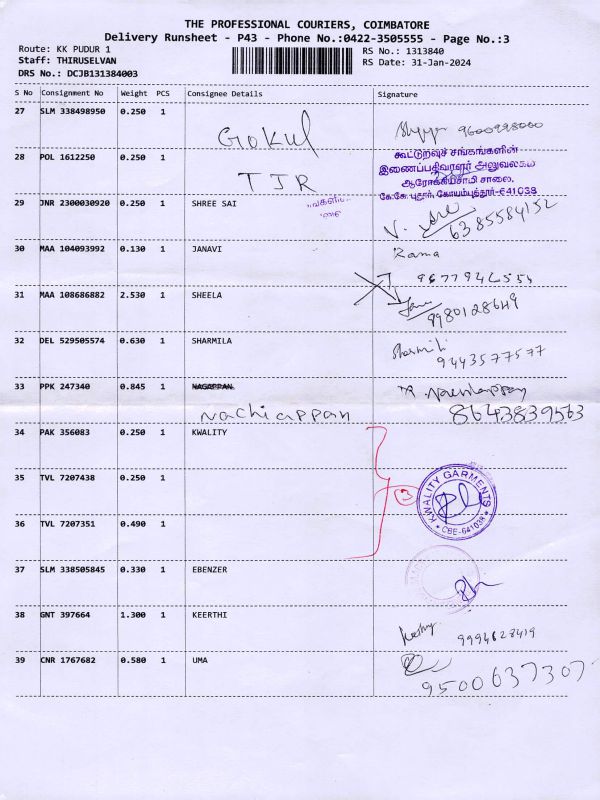 THE PROFESSIONAL COURIERS, COIMBATORE
Delivery Runsheet - P43 - Phone No.:0422-3505555 - Page No.:3
Route: KK PUDUR 1
RS No.: 1313840
Staff: THIRUSELVAN
RS Date: 31-Jan-2024
DRS No.: DCJB131384003
S No Consignment No Weight PCS Consignee Details Signature
27 SLM 338498950 0.250 1
GOKUL
28 POL 1612250 0.250 1
TJR
கூட்டுறவுச் சங்கங்களின்
இணைப்பதிவாளர் அலுவலகம்
ஆரோக்கியசாமி சாலை,
கே.கே. புதூர், கோயம்புத்தூர்-641038
29 JNR 2300030920 0.250 1 SHREE SAI
6385584152
30 MAA 104093992 0.130 1 JANAVI Rama
31 MAA 108686882 2.530 1 SHEELA
9980128649
32 DEL 529505574 0.630 1 SHARMILA Sharmili
9443577577
33 PPK 247340 0.845 1 NAGAPPAN
Nachiappan 8643839563
34 PAK 356083 0.250 1 KWALITY
35 TVL 7207438 0.250 1
3
KWALITY GARMENTS
* CBE-641038 *
36 TVL 7207351 0.490 1
37 SLM 338505845 0.330 1 EBENZER
38 GNT 397664 1.300 1 KEERTHI
9994628419
39 CNR 1767682 0.580 1 UMA
9500637307